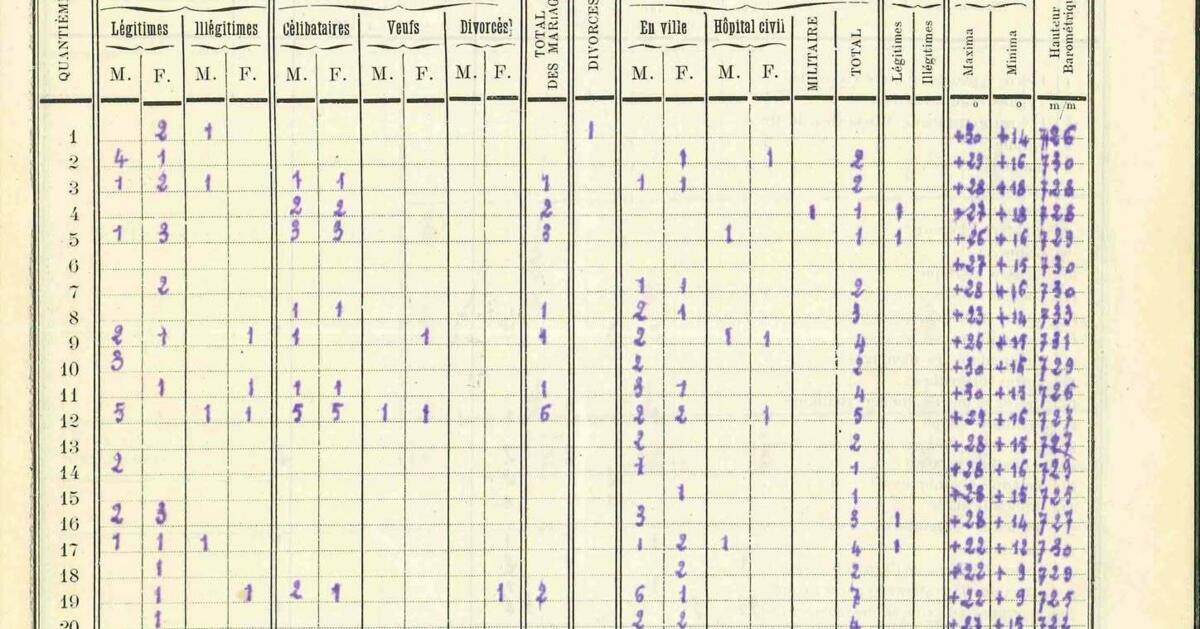 QUANTIÈM
Légitimes Illégitimes Célibataires Veufs Divorcés TOTAL DES MARIAG DIVORCES En ville Hôpital civil MILITAIRE TOTAL Légitimes Illégitimes Maxima Minima Hauteur Barométriqu
M. F. M. F. M. F. M. F. M. F. M. F. M. F.
o o m/m
1 2 1 1 +30 +14 726
2 4 1 1 1 2 +29 +16 730
3 1 2 1 1 1 1 1 1 2 +28 +18 728
4 2 2 2 1 1 1 +27 +18 728
5 1 3 3 3 3 1 1 1 +26 +16 729
6 +27 +15 730
7 2 1 1 2 +28 +16 730
8 1 1 1 2 1 3 +23 +14 733
9 2 1 1 1 1 1 2 1 1 4 +26 731
10 3 2 2 +30 +16 729
11 1 1 1 1 1 3 1 4 +30 +13 726
12 5 1 1 5 5 1 1 6 2 2 1 5 +29 +16 727
13 2 2 +28 +15 727
14 2 1 1 +28 +16 729
15 1 1 +28 +15 725
16 2 3 3 3 1 +28 +14 727
17 1 1 1 1 2 1 4 1 +22 +12 730
18 1 2 2 +22 +9 729
19 1 1 2 1 1 2 6 1 7 +22 +9 725
20 1 2 2 4 +27 +15 722